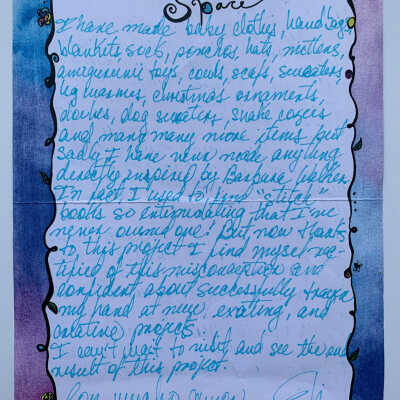 Space
I have made baby clothes, handbags,
blankets, socks, ponchos, hats, mittens,
amigurumi toys, cowls, scarfs, sweaters,
leg warmers, christmas ornaments,
doilies, dog sweaters, snake cozies
and many many more items but
sadly I have never made anything
directly inspired by Barbara Walker.
In fact, I used to find "stitch"
books so intimidating that I've
never owned one! But now thanks
to this project I find myself rec-
tified of this misconception and
confident about successfully
my hand at new, exciting, and
creating projects.
I can't wait to visit, and see the end
result of this project.
Con mucho amor,